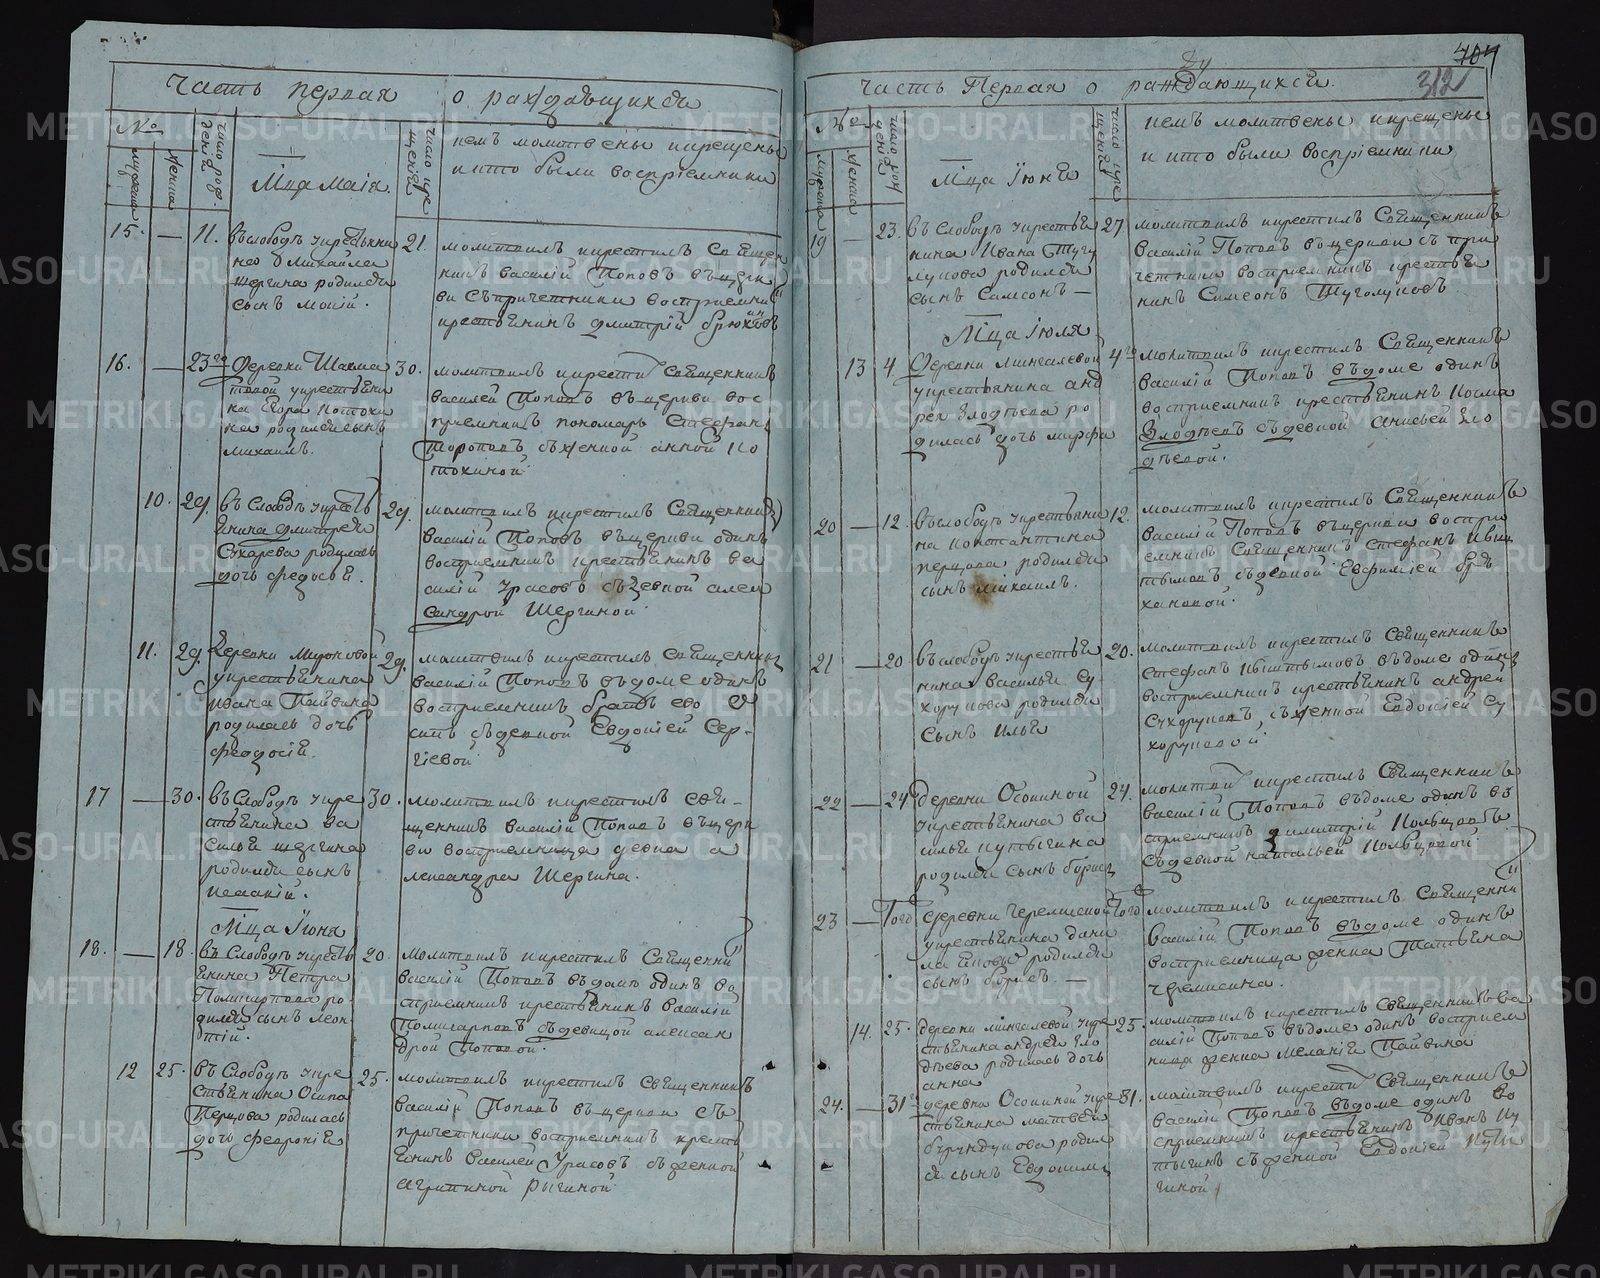 Часть первая о раждающихся
№
мужеска
женска
число рождений
Мца маія
число крещений
кемъ молитвены и крещены
и кто были воспріемники
15. — 11.
въ слободѣ у крестьянина
Михаила
Шергина родился
сынъ Мокій.
21.
молитвилъ и крестилъ Священ
никъ Василій Поповъ въ церк
ви съ причетники воспріемникъ
крестьянинъ Дмитрій Брюхановъ
16. — 23го
Деревни Шахма
товой у крестьяни
на Егора Потохи
на родился сынъ
Михаилъ.
30.
молитвилъ и крестилъ Священникъ
Василей Поповъ въ церкви вос
пріемникъ пономарь Стефанъ
Тороповъ съ женкой Анной По
тохиной.
10. 29.
въ Слободѣ у кресть
янина Дмитрея
Сухарева родилась
дочь Федосья.
29.
молитвилъ и крестилъ Священникъ
Василій Поповъ въ церкви одинъ
воспріемникъ крестьянинъ Ва
силій Урасовъ съ девкой Алек
сандрой Шергиной.
11. 29.
Деревни Мироновой
у крестьянина
Ивана Пайвина
родилась дочь
Феодосія.
29.
молитвилъ и крестилъ Священникъ
Василій Поповъ въ доме одинъ
воспріемникъ братъ ево
съ девкой Евдокіей Сер-
гіевой
17 — 30.
въ Слободѣ у кре
стьянина Ва
силья Шергина
родился сынъ
Исаакій.
30.
молитвилъ и крестилъ Свя-
щенникъ Василій Поповъ въ церк
ви воспріемница девка А
лександра Шергина.
Мца Іюня
18. — 18.
въ Слободѣ у кресть
янина Петра
Поликарпова ро-
дился сынъ Леон-
тій.
20.
молитвилъ и крестилъ Священникъ
Василій Поповъ въ доме одинъ во
спріемникъ крестьянинъ Василій
Поликарповъ съ девицой Алексан
дрой Поповой.
12 25.
въ Слободѣ у кре
стьянина Осипа
Перцова родилась
дочь Феврoнія
25.
молитвилъ и крестилъ Священникъ
Василій Поповъ въ церкви съ
причетники воспріемникъ кресть
янинъ Василей Урасовъ съ женкой
Агрипиной Рычиной.
404
312
Часть Первая о раждающихся.
№
мужеска
женска
число рождений
Мца Іюня
число крещений
кемъ молитвены и крещены
и кто были воспріемники
19 — 23.
въ Слободѣ у крестья
нина Ивана Туго
лукова родился
сынъ Самсонъ —
27
молитвилъ и крестилъ Священникъ
Василій Поповъ въ церкви съ при
четники воспріемникъ крестья
нинъ Симеонъ Туголуковъ.
Мца Іюля
13 4
Деревни Мингалевой
у крестьянина Анд
рея Злодѣева ро
дилась дочь Марфа
4го
молитвилъ и крестилъ Священникъ
Василій Поповъ въ доме одинъ
воспріемникъ крестьянинъ Косма
Злодѣевъ съ девкой Анисьей Зло
дѣевой.
20 — 12.
въ слободѣ у крестьяни
на Константина
Перцова родился
сынъ Михаилъ.
12.
молитвилъ и крестилъ Священникъ
Василій Поповъ въ церкви воспри
емникъ Священникъ Стефанъ Ивиш
тымовъ съ девкой Евфиміей Брю
хановой.
21 — 20
въ слободѣ у крестья
нина Василья Су
хорукова родился
сынъ Илья
20.
молитвилъ и крестилъ Священникъ
Стефанъ Ивиштымовъ въ доме одинъ
воспріемникъ крестьянинъ Андрей
Сухоруковъ съ женкой Евдокіей Су
хоруковой
22 — 24
деревни Осокиной
у крестьянина Ва
силья Путыгина
родился сынъ Борисъ
24.
молитвилъ и крестилъ Священникъ
Василій Поповъ въ доме одинъ во
спріемникъ Димитрій Кольцовъ
съ девкой Натальей Кольцовой.
23 — Того
Деревни Черемисской
у крестьянина Дани
ла родился
сынъ Борисъ. —
Того
молитвилъ и крестилъ Священникъ
Василій Поповъ въ доме одинъ
воспріемница женка Татьяна
Черемисина.
14. 25.
деревни Мингалевой у кре
стьянина Андрея Зло
дѣева родилась дочь
Анна
25.
молитвилъ и крестилъ Священникъ Ва
силій Поповъ въ доме одинъ воспріем
ница женка Меланія Пайвина
24. — 31го
деревни Осокиной у кре
стьянина Матвея
Бурундукова родил
ся сынъ Евдокимъ
31.
молитвилъ и крестилъ Священникъ
Василій Поповъ въ доме одинъ во
спріемникъ крестьянинъ Иванъ Пу
тыгинъ съ женкой Евдокіей Путы
гиной
METRIKI.GASO-URAL.RU